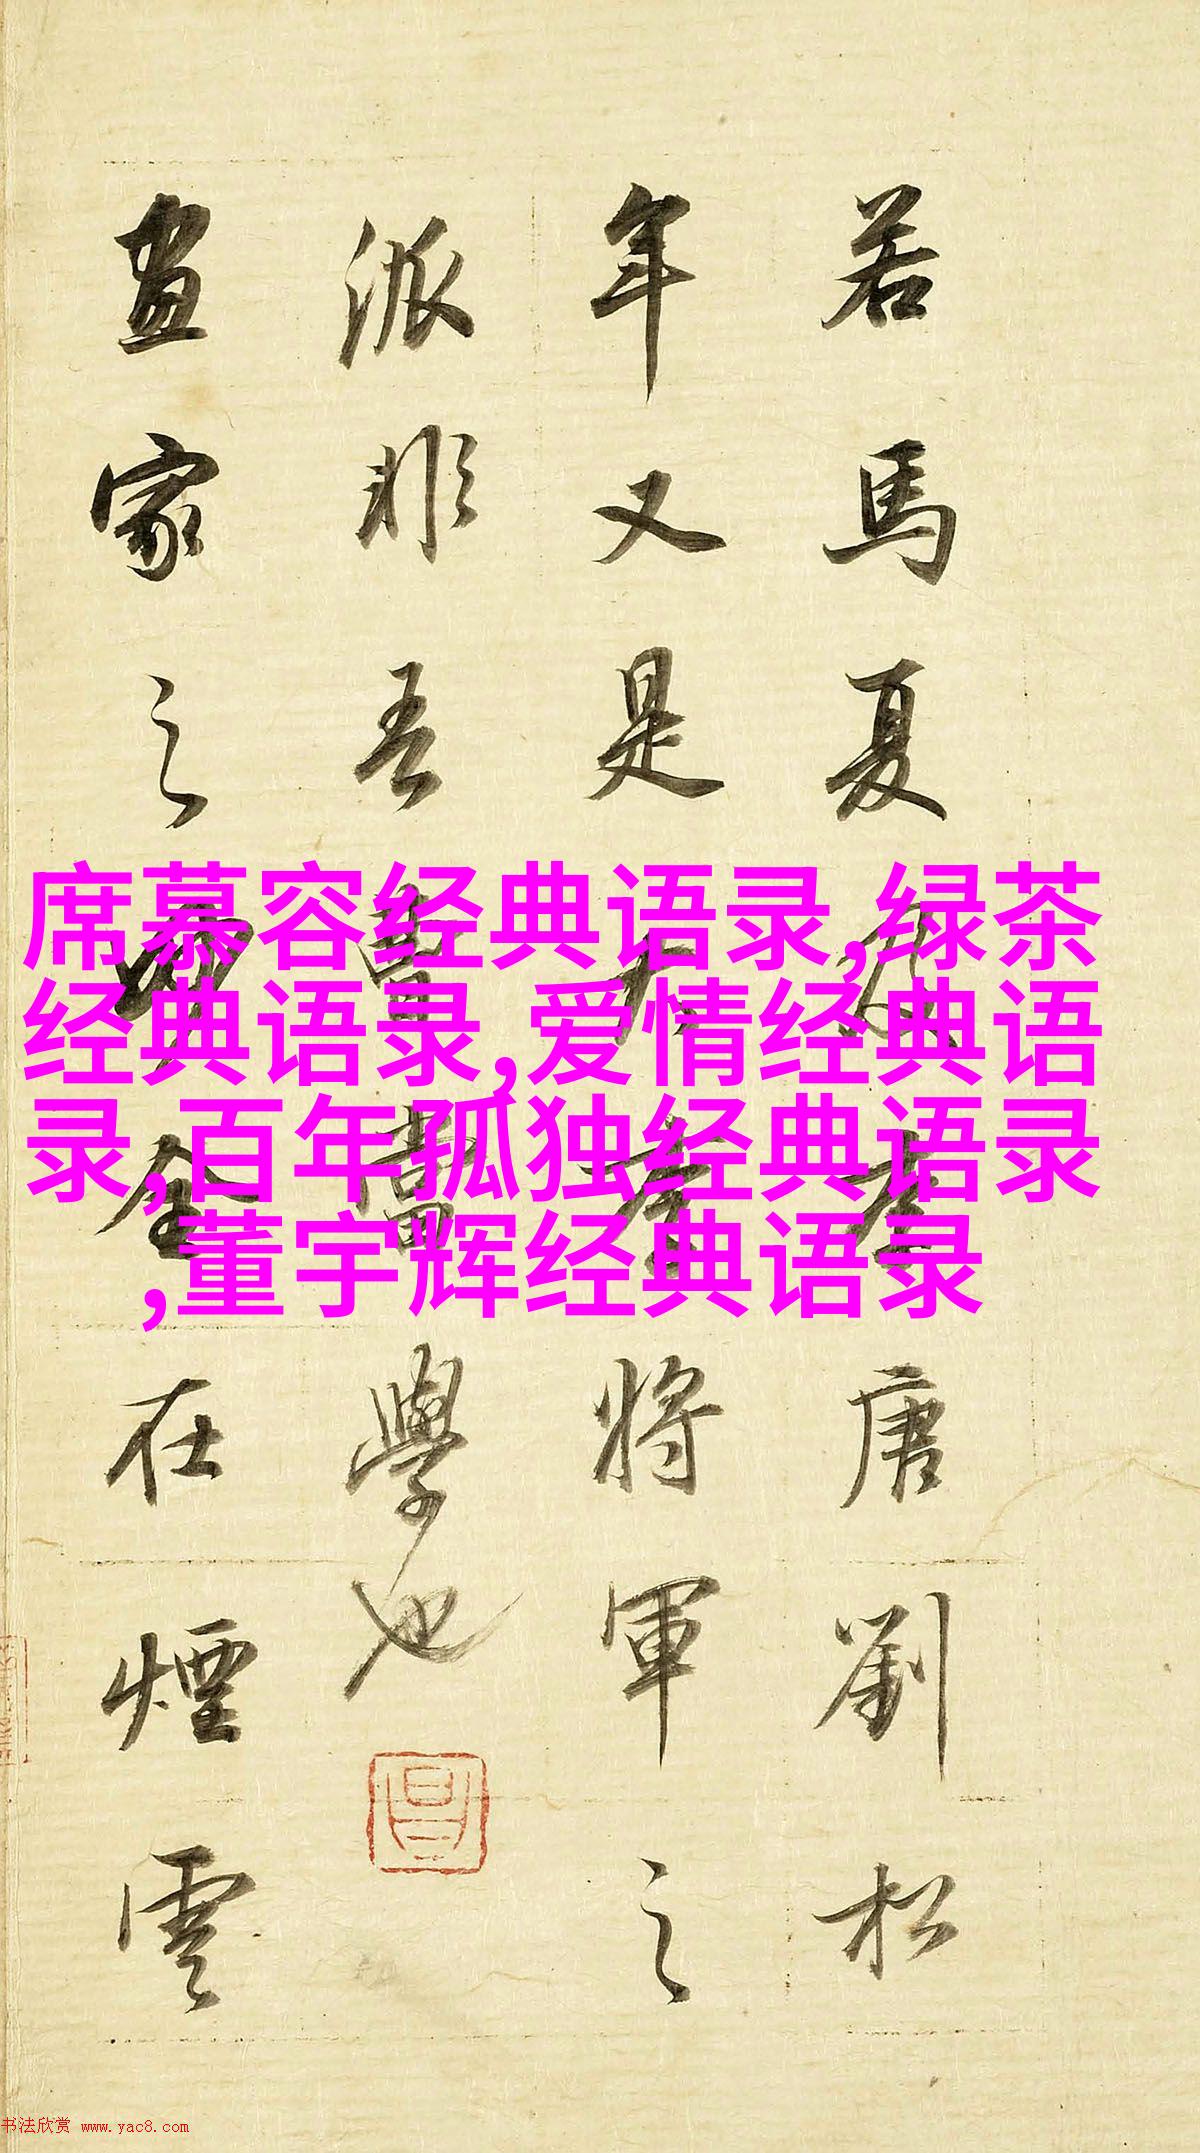 若馬夏及李唐劉松
年又是大李將軍之
派非吾曹當學也
畫家之妙全在煙雲
席慕容经典语录,绿茶
经典语录,爱情经典语
录,百年孤独经典语录
,董宇辉经典语录
书法欣赏 www.yac8.com